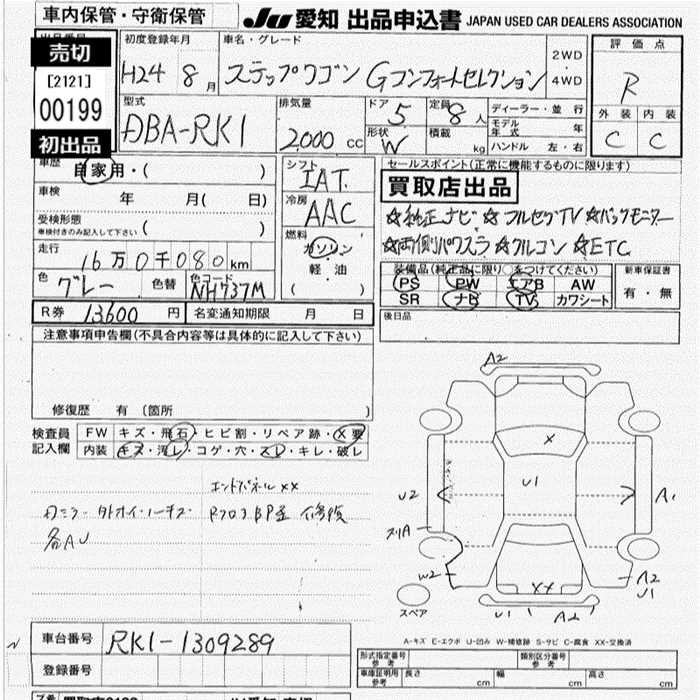 車内保管・守衛保管
JU 愛知 出品申込書 JAPAN USED CAR DEALERS ASSOCIATION
売切
[2121]
00199
初出品
初度登録年月 H24 8月
車名・グレード ステップワゴン Gコンフォートセレクション
2WD・4WD
評価点 R
外装 内装
C C
型式 DBA-RK1
排気量 2000 cc
ドア 5 定員 8人
形状 W 積載 kg
ディーラー・並行
モデル年式 年
ハンドル 左・右
車歴 自家用・( )
車検 年 月( 日)
受検形態 車検付きのみ記入して下さい ( )
走行 16万0千080km
色 グレー 色替 色コード NH737M
シフト IAT
冷房 AAC
燃料 ガソリン
軽油
( )
セールスポイント(正常に機能するものに限ります)
買取店出品
☆純正ナビ ☆フルセグTV ☆バックモニター
☆両側パワスラ ☆クルコン ☆ETC
装備品(純正品に限り○をつけてください)
PS PW エアB AW
SR ナビ TV カワシート
新車保証書
有・無
R券 13600円 名変通知期限 月 日
後日品
注意事項申告欄(不具合内容等は具体的に記入して下さい)
修復歴 有 (箇所 )
検査員記入欄
FW キズ・飛石・ヒビ割・リペア跡・X要
内装 キズ・汚レ・コゲ・穴・スレ・キレ・破レ
エンドパネルxx
各AU
A2
X
U1
U2
A1
スリA
W2
XX
A2
U1
U1
A2
スペア
A-キズ E-エクボ U-凹み W-補修跡 S-サビ C-腐食 XX-交換済
車台番号 RK1-1309289
登録番号
形式指定番号 参考
類別区分番号 参考
車庫証明用 参考 長さ cm 幅 cm 高さ cm